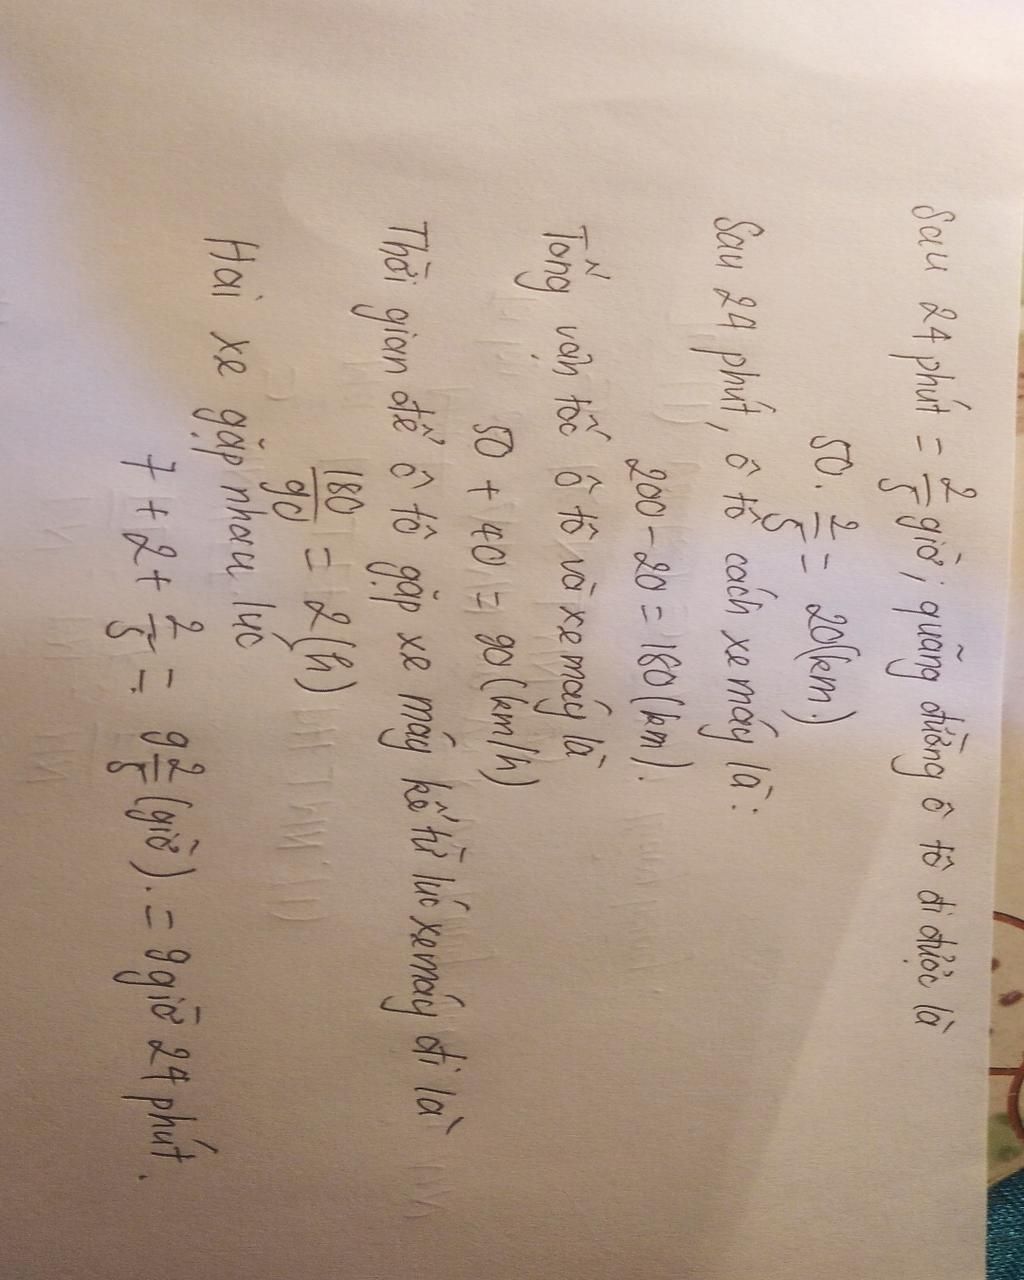 Sau 24 phút = 2/5 giờ, quãng đường ô tô đi được là
50. 2/5 = 20(km.)
Sau 24 phút, ô tô cách xe máy là:
200 - 20 = 180(km).
Tổng vận tốc ô tô và xe máy là
50 + 40 = 90(km/h)
Thời gian để ô tô gặp xe máy kể từ lúc xe máy đi là
180/90 = 2(h)
Hai xe gặp nhau lúc
7 + 2 + 2/5 = 9 2/5 (giờ). = 9 giờ 24 phút.